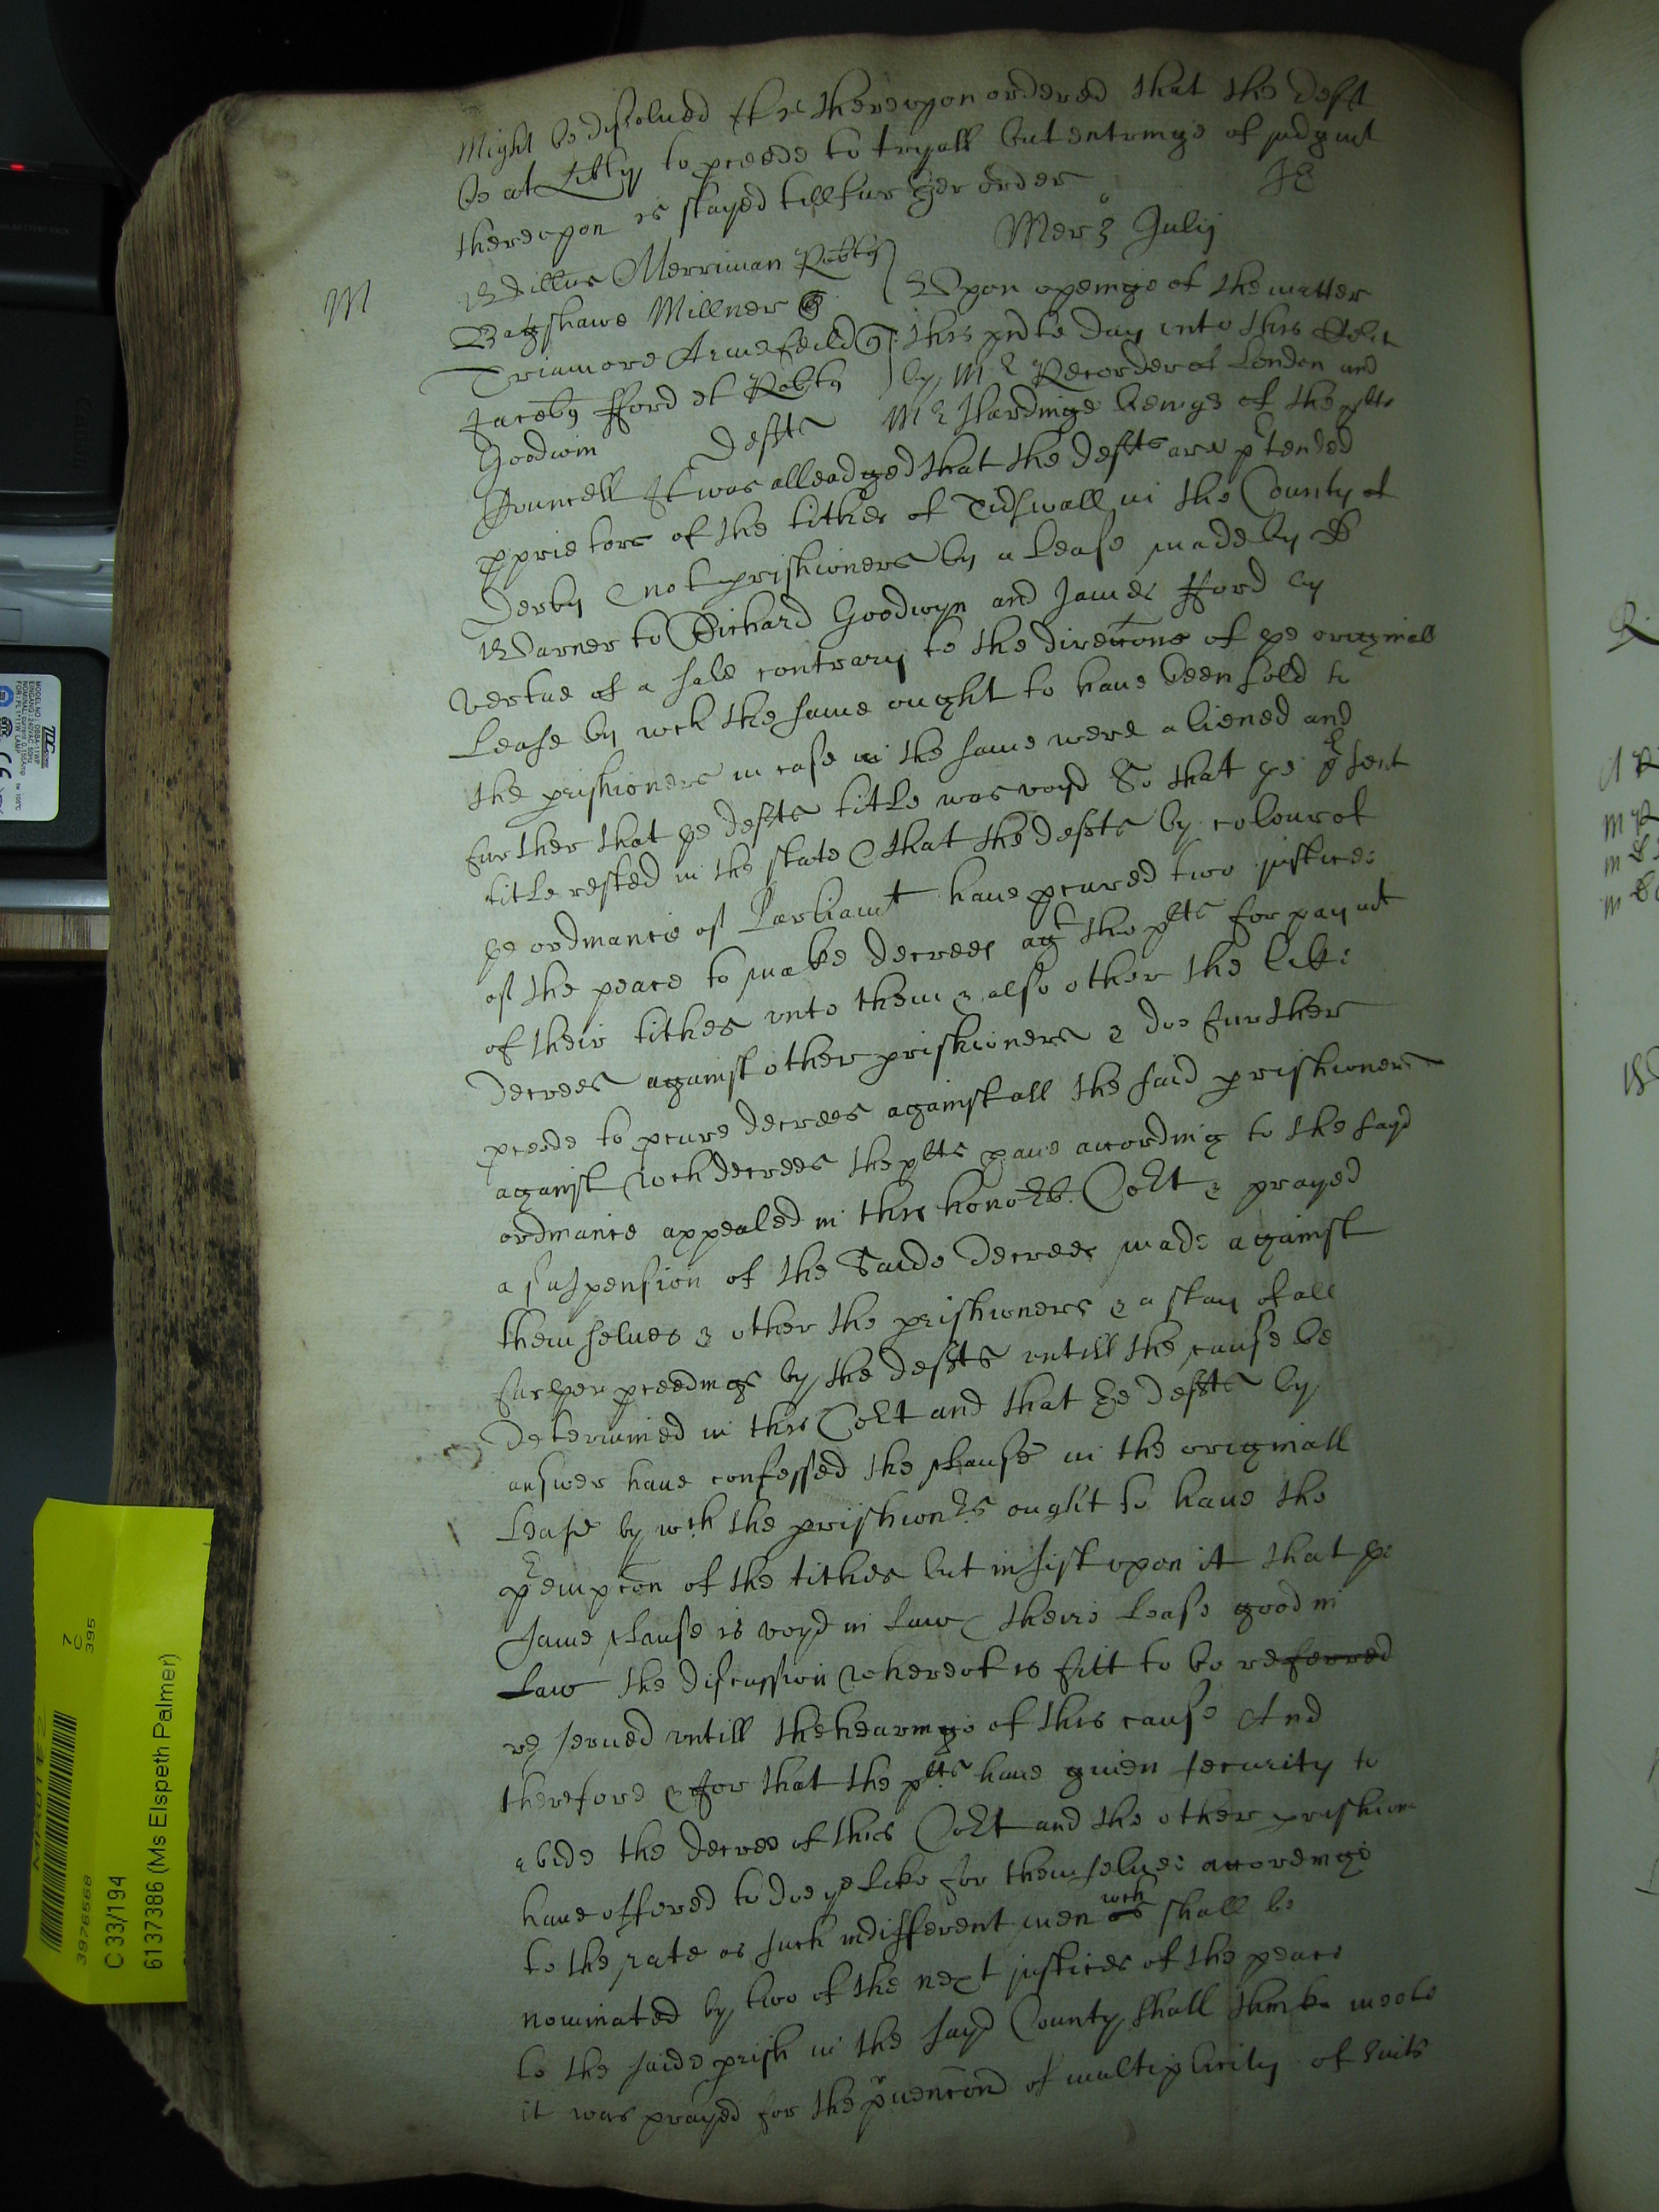 Might be dissolued It is therevpon ordered that the deft
be at Libty to pceede to tryall but entringe of judgmt
therevpon is stayed till further order
JE
Merc 3 Julij
M
Willus Merriman Robtus
Bagshawe Millner
Triamore Armefeild
Jacobus fford et Robtus
Goodwin Defts
Vpon openinge of the matter
this pnte day into this Court
by Mr Recorder of London and
Mr Hardinge beinge of the plts
Councell It was alleadged that the defts are prtended
pprietors of the tithes of Tidswall in the County of
Derby & not prishioners by a Lease made by Dr
Warner to Richard Goodwyn and James fford by
vertue of a sale contrary to the direccons of ye originall
Lease by wch the same ought to haue been sold to
the prishioners in case the same were aliened and
further that ye defts title was voyd So that ye prsent
title rested in the state & that the defts by colour of
ye ordinance of Parliamt haue pcured two justices
of the peace to make decrees agt the plts for paymt
of their tithes vnto them & also other the like
decrees against other prishioners & doe further
pceede to pcure decrees against all the said prishioners
against wch decrees the plts haue according to the sayd
ordinance appealed in this honorble Cort & prayed
a suspension of the saide decrees made against
themselues & other the prishioners & a stay of all
further pceedings by the defts vntill the cause be
determined in this Cort and that the defts by
answer haue confessed the clause in the originall
Lease by wch the prishionrs ought to haue the
prempcon of the tithes but insist vpon it that ye
same clause is voyd in Law & theire Lease good in
Law the discussion whereof is fitt to be referred
reserued vntill the hearinge of this cause And
therefore & for that the plts haue giuen security to
abide the decree of this Cort and the other prishion
haue offered to doe ye like for themselues accordinge
to the rate as such indifferent men as wch shall be
nominated by two of the next justices of the peace
to the saide prish in the sayd County shall thinke meete
it was prayed for the prvencon of multiplicity of suits
MODEL NO
CE
7
C
395
39765568
C 33/194
6137386 (Ms Elspeth Palmer)